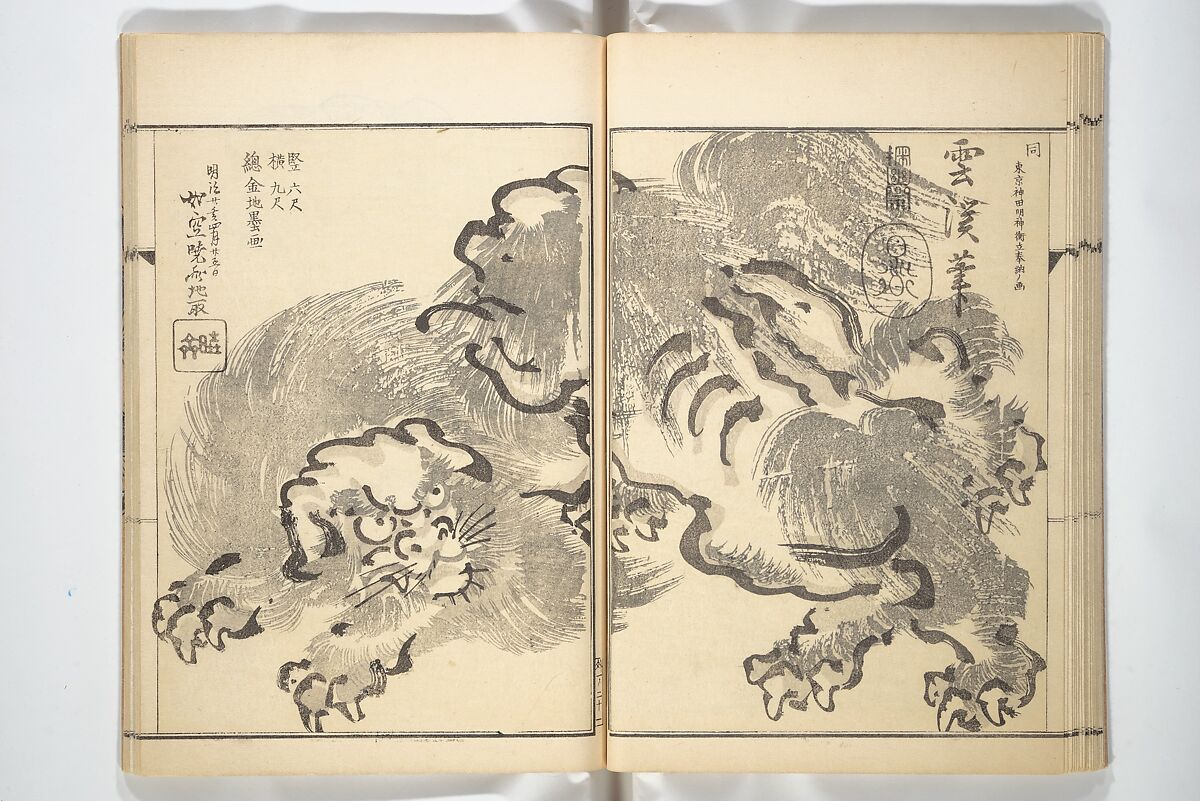 同
東京神田明神衝立奉納ノ画
雲溪筆
竪六尺
横九尺
總金地墨画
明治廿年四月廿五日
如空暁斎地取